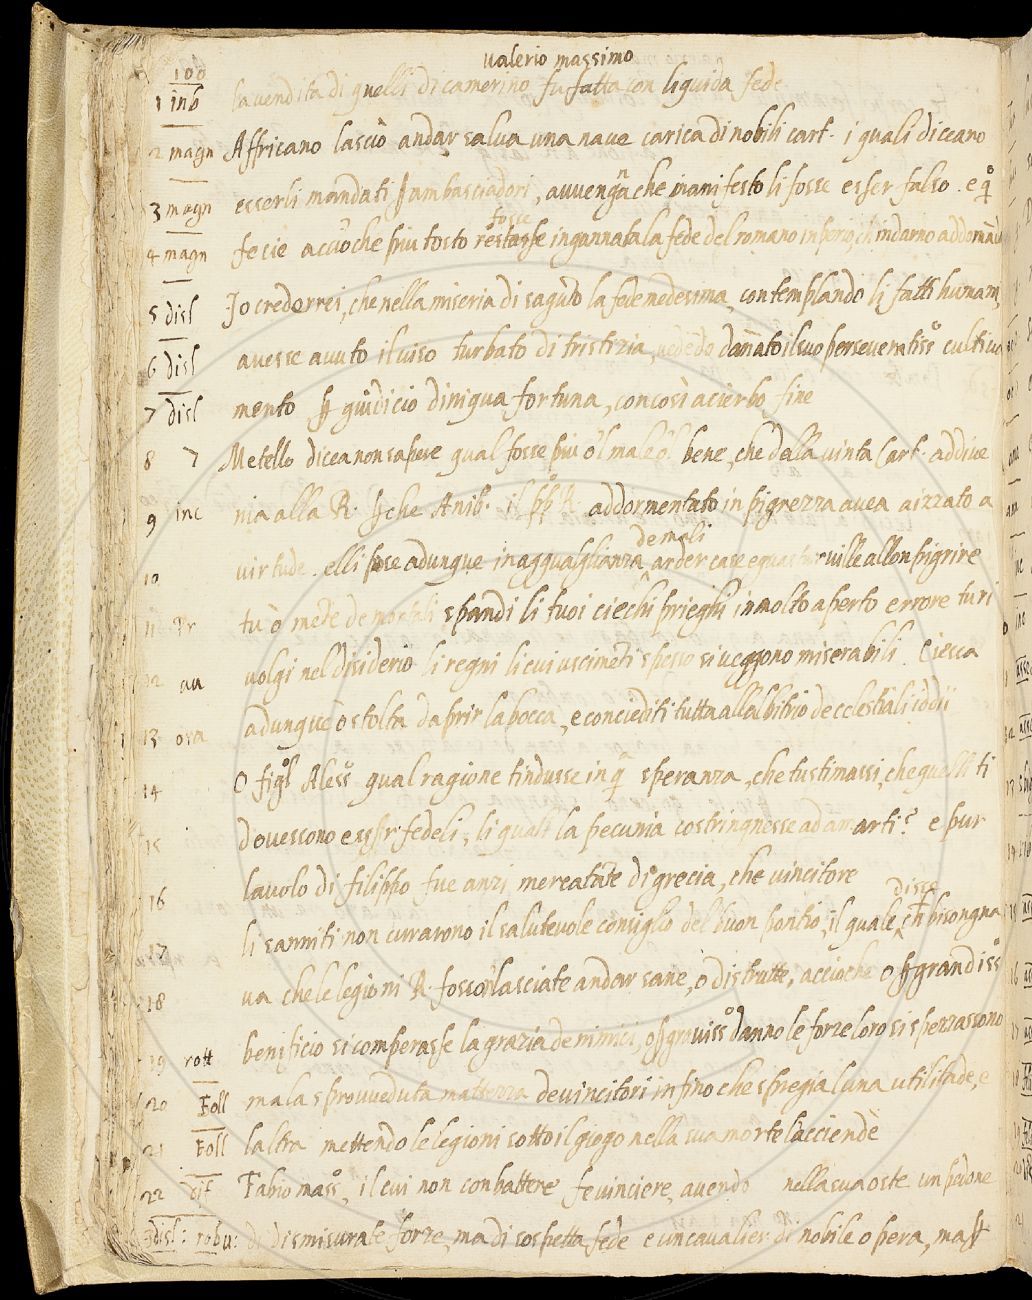 valerio massimo
100
1 inb la vendita di quelli di camerino fu fatta con liquida fede
2 magn Affricano lasciò andar salva una nave carica di nobili cart. i quali diceano
3 magn esserli mandati ambasciadori, avvengã che manifesto li fosse esser falso. e
fosse
4 magn fe ciè acciò che piu tosto ingannata la fede del romano inperio, ch indarno addomãda
5 disl Io crederrei, che nella miseria di sagũto la fede medesima, contemplando li fatti humani,
6 disl avesse avuto il viso turbato di tristizia, vedẽdo dañato il suo perseveratiss.º cultiva
7 disl mento giudicio d iniqua fortuna, con così acierbo fine
8 7 Metello dicea non sapere qual fosse piu o'l male o'l bene, che della vinta Cart. addive
9 inc nia alla R. che Anib. il R. addormentato in pigrezza avea aizzato a
de mali
10 virtude. elli pose adunque in agguaglianza arder case ville all onpigrire
11 Pr tu ò mẽte de mortali spandi li tuoi ciechi prieghi in molto aperto errore tu ri
12 au volgi nel disiderio li regni li cui uscimẽti spesso si veggono miserabili. Ciecca
13 ora adunque ò stolta d aprir la bocca, e conciediti tutta all albitrio de celestiali iddii
14 O figl Aless.º qual ragione t indusse in q̃ speranza, che tu stimassi, che quelli ti
15 dovessono esser fedeli, li quali la pecunia costringnesse ad amarti? e pur
16 l avolo di filippo fue anzi mercatãte di grecia, che vincitore
disse
17 li sanniti non currarono il salutevole consiglio del buon pontio, il quale ch bisongna
18 va che le legioni R. fosson lasciate andar sane, o distrutte, accioche o grandiss.º
19 rott benificio si comperasse la grazia de nimici, o graviss.º danno le forze loro si spezzassono
20 Foll ma la sprovveduta mattezza de vincitori infino che spregia l una utilitade, e
21 Foll l altra mettendo le legioni sotto il giogo nella sua morte l acciende
22 cit Fabio mass.º, il cui non conbattere fe vinciere, avendo nella sua oste un pedone
disl: robu: di dismisurate forze, ma di sospetta fede e un cavalier di nobile opera, ma